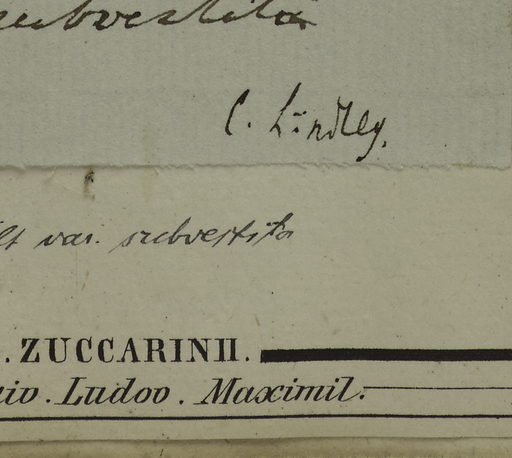 subvestita
C. Lindley.
var. subvestita
. ZUCCARINII.
Ludov. Maximil.